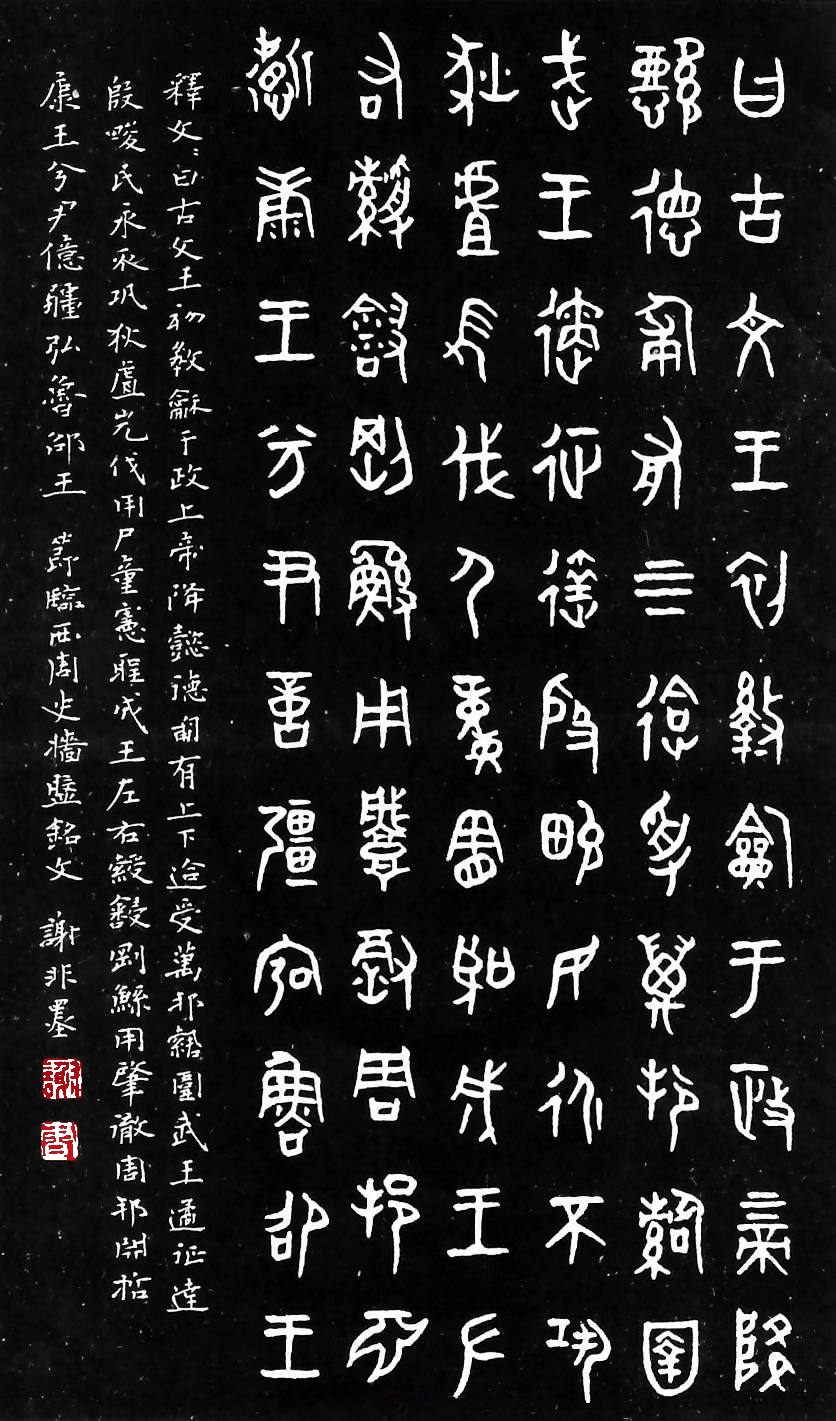 曰古文王初盭龢于政上帝降
懿德匍有上下迨受萬邦䚄圉
武王遹征達殷畯民永不巩
狄虘長伐尸童憲聖成王左
右剛鯀用肇徹周邦淵
哲康王兮尹億疆弘魯邵王
釋文：曰古文王初敎龢于政上帝降懿德匍有上下迨受萬邦䚄圉武王遹征達
殷畯民永不巩狄虘長伐尸童憲聖成王左右剛鯀用肇徹周邦淵哲
康王兮尹億疆弘魯邵王 節臨西周史墻盤銘文 謝非墨